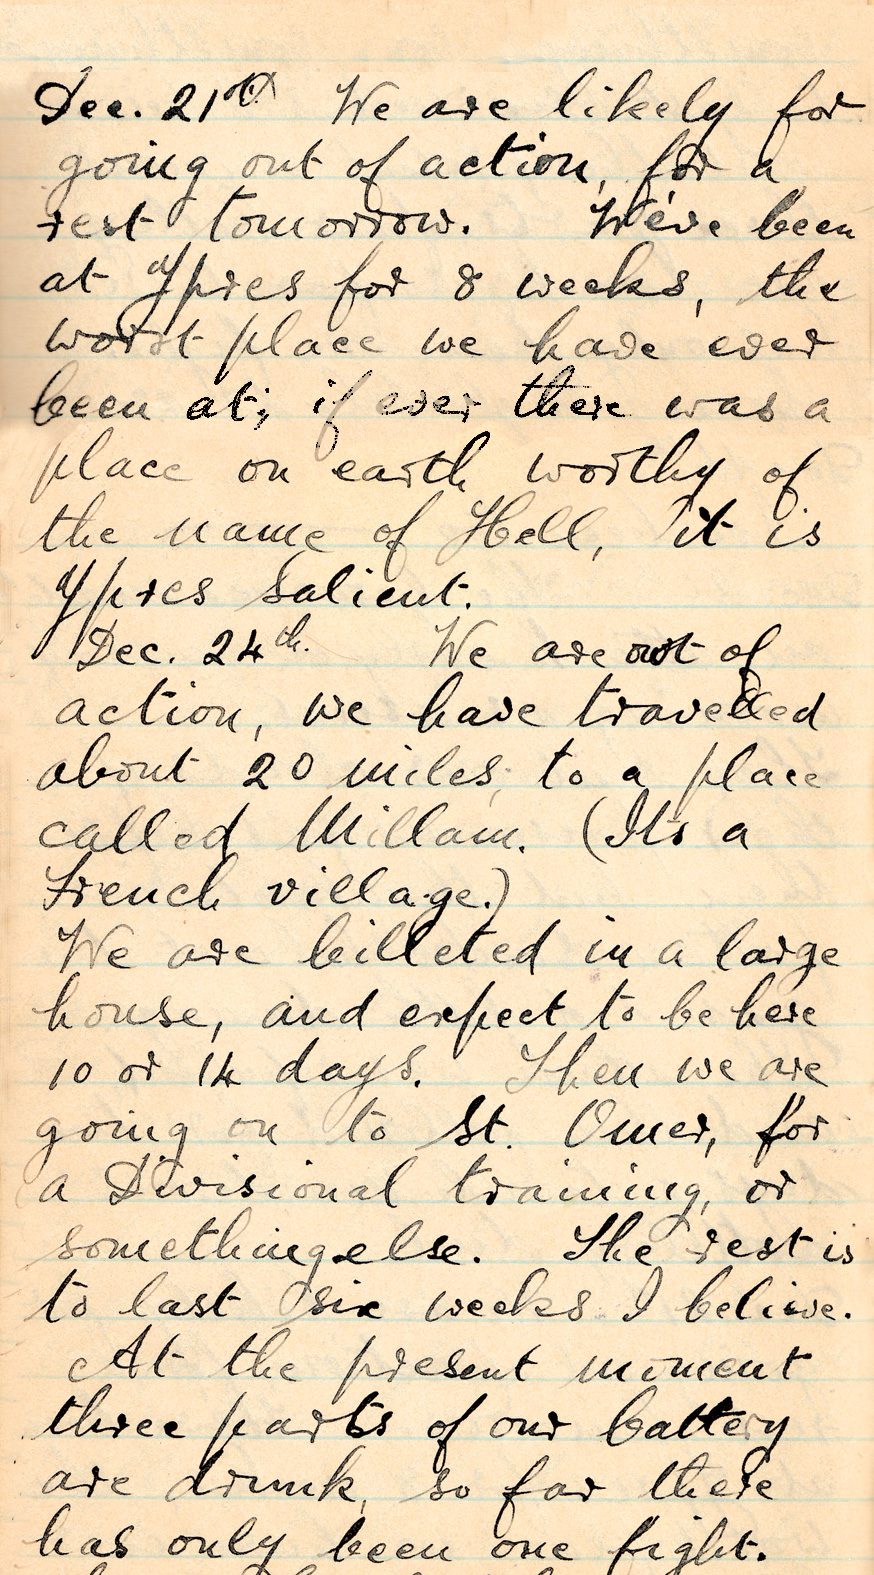 Dec. 21st We are likely for
going out of action, for a
rest tomorrow. We've been
at Ypres for 8 weeks, the
worst place we have ever
been at; if ever there was a
place on earth worthy of
the name of Hell, it is
Ypres Salient.
Dec. 24th. We are out of
action, we have travelled
about 20 miles, to a place
called Millam. (Its a
French village.)
We are billeted in a large
house, and expect to be here
10 or 14 days. Then we are
going on to St. Omer, for
a Divisional training, or
something else. The rest is
to last six weeks I believe.
At the present moment
three parts of our battery
are drunk, so far there
has only been one fight.